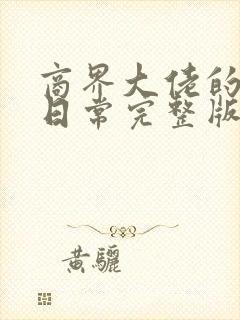 商界大佬的
日常完整版
黄骊